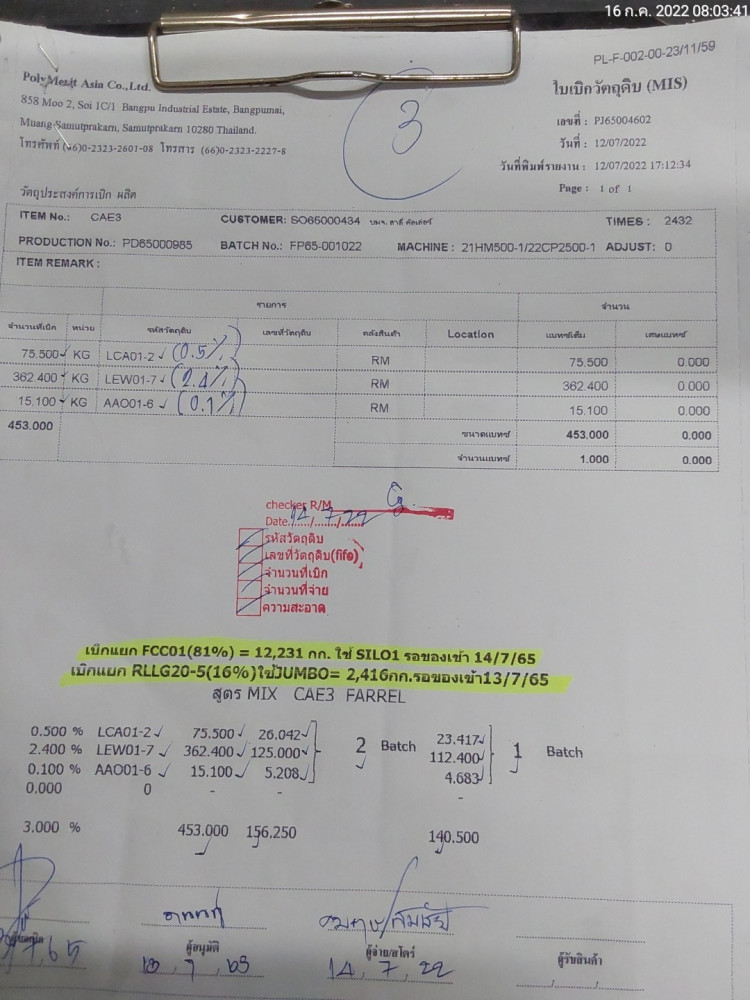 16 ก.ค. 2022 08:03:41
PL-F-002-00-23/11/59
PolyMerit Asia Co.,Ltd.
858 Moo 2, Soi 1C/1 Bangpu Industrial Estate, Bangpumai,
Muang-Samutprakarn, Samutprakarn 10280 Thailand.
โทรศัพท์ (66)0-2323-2601-08 โทรสาร (66)0-2323-2227-8
3
ใบเบิกวัตถุดิบ (MIS)
เลขที่ : PJ65004602
วันที่ : 12/07/2022
วันที่พิมพ์รายงาน : 12/07/2022 17:12:34
Page : 1 of 1
วัตถุประสงค์การเบิก ผลิต
ITEM No.: CAE3 CUSTOMER: SO65000434 TIMES : 2432
PRODUCTION No.: PD65000985 BATCH No.: FP65-001022 MACHINE : 21HM500-1/22CP2500-1 ADJUST: 0
ITEM REMARK :
รายการ จำนวน
จำนวนที่เบิก หน่วย รหัสวัตถุดิบ เลขที่วัตถุดิบ คลังสินค้า Location แบทซ์เต็ม เศษแบทซ์
75.500 KG LCA01-2 (0.5%) RM 75.500 0.000
362.400 KG LEW01-7 (2.4%) RM 362.400 0.000
15.100 KG AAO01-6 (0.1%) RM 15.100 0.000
453.000 ขนาดแบทซ์ 453.000 0.000
จำนวนแบทซ์ 1.000 0.000
checker R/M
Date 14/7/22
รหัสวัตถุดิบ
เลขที่วัตถุดิบ(fifo)
จำนวนที่เบิก
จำนวนที่จ่าย
ความสะอาด
เบิกแยก FCC01(81%) = 12,231 กก. ใช้ SILO1 รอของเข้า 14/7/65
เบิกแยก RLLG20-5(16%)ใช้JUMBO= 2,416กก.รอของเข้า13/7/65
สูตร MIX CAE3 FARREL
0.500 % LCA01-2 75.500 26.042 23.417
2.400 % LEW01-7 362.400 125.000 2 Batch 112.400 1 Batch
0.100 % AAO01-6 15.100 5.208 4.683
0.000 0 - - -
3.000 % 453.000 156.250 140.500
ผู้อนุมัติ ผู้จ่าย/สโตร์ ผู้รับสินค้า
14, 7, 22